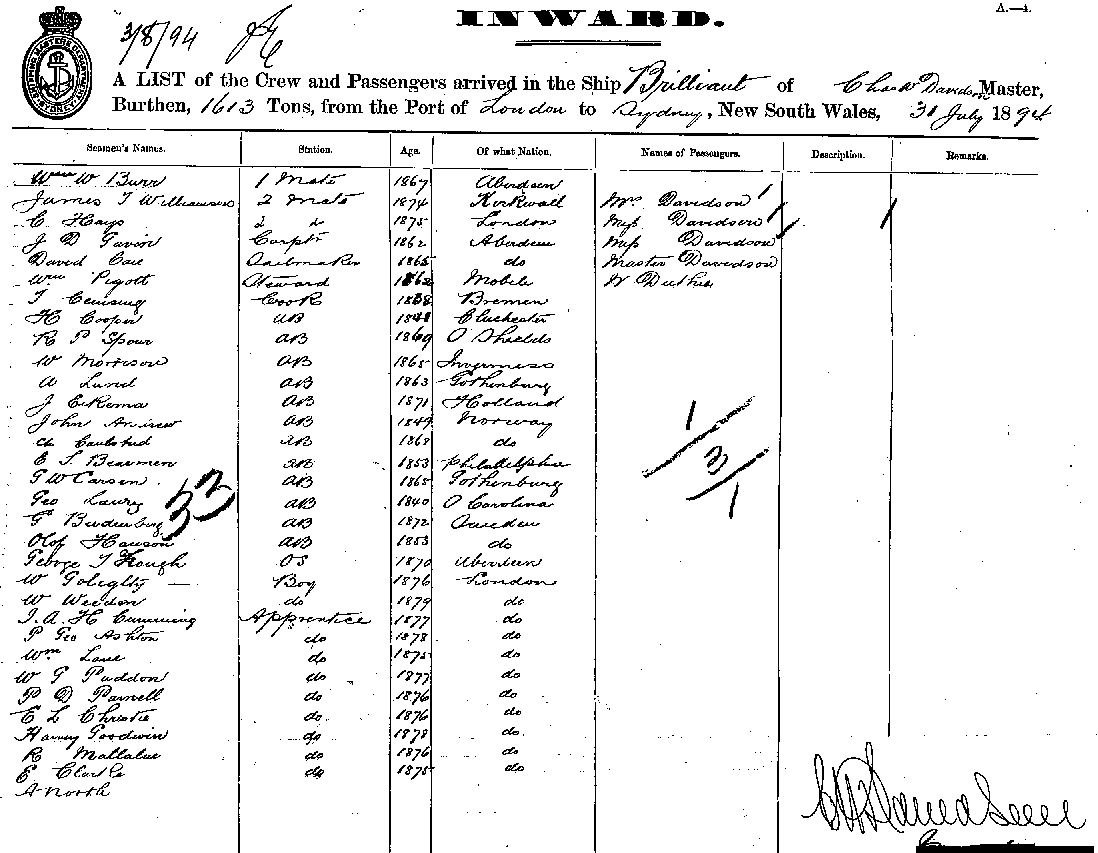 A.—4.
INWARD.
3/8/94
A LIST of the Crew and Passengers arrived in the Ship Brilliant of Chas W Davidson, Master,
Burthen, 1613 Tons, from the Port of London to Sydney, New South Wales, 31 July 1894
Seamen's Names. Station. Age. Of what Nation. Names of Passengers. Description. Remarks.
Wm W Burr 1 Mate 1867 Aberdeen
James T Williamson 2 Mate 1874 Kirkwall Mrs Davidson 1
C Hays 1875 London Miss Davidson 1
J D Gavin Carptr 1862 Aberdeen Miss Davidson
David Sailmaker 1865 do Master Davidson
Wm Pigott Steward 1862 Mobile W Duthie
T Cook 1838 Bremen
H Cooper AB 1848 Chichester
R P Spour AB 1869 S Shields
W Morrison AB 1865 Inverness
A Lund AB 1863 Gothenburg
J Ekema AB 1871 Holland
John Andrew AB 1849 Norway
AB 1868 do
E S Bearmen AB 1853 Philadelphia
G W Carsen AB 1865 Gothenburg
Geo Laury AB 1840 S Carolina
AB 1872 Sweden
Olof Hanson AB 1853 do
George T Hough OS 1870 Aberdeen
W Goleglty — Boy 1876 London
W Weedon do 1879 do
J. A. H Cumming Apprentice 1877 do
P Geo Ashton do 1878 do
Wm Lane do 1875 do
W G Puddon do 1877 do
P D Parnell do 1876 do
E L Christie do 1876 do
Harvey Goodwin do 1878 do
R Mallalue do 1876 do
E Clarke do 1875 do
A North
33
1
3
1